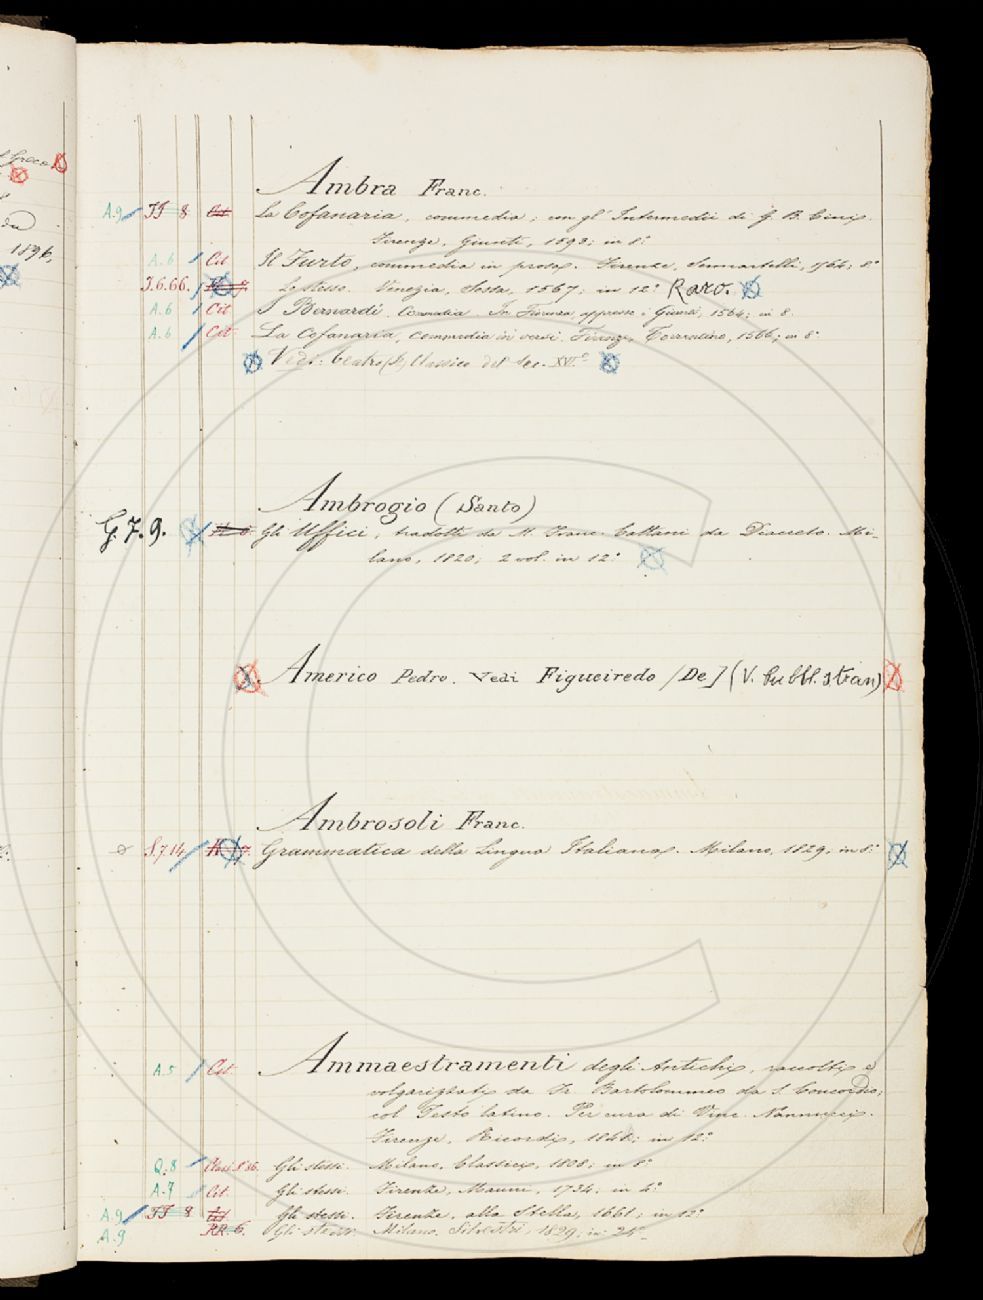 Ambra Franc.
A.9 FF 8 Cit La Cofanaria, commedia; con gl' Intermedii di G. B. Cini.
Firenze, Giunti, 1593; in 8.°
A.6 Cit Il Furto, commedia in prosa. Firenze, Sermartelli, 1564; 8.°
I.6.66. Lo stesso. Venezia, Sessa, 1567; in 12.° Raro.
A.6 Cit I Bernardi. Commedia. In Firenze appresso i Giunti, 1564; in 8.
A.6 Cit La Cofanaria, commedia in versi. Firenze, Torrentino, 1566; in 8.°
Vedi: Teatro Classico del Sec. XVI.°
Ambrogio (Santo)
G.7.9. Gli Uffici, tradotti da M. Franc. Cattani da Diacceto. Mi-
lano, 1820; 2 vol. in 12.°
Americo Pedro. Vedi Figueiredo (De] (V. bubbl. stran)
Ambrosoli Franc.
S.7.14 Grammatica della Lingua Italiana. Milano, 1829; in 8.°
A.5 Cit Ammaestramenti degli Antichi, raccolti e
volgarizzati da Fr. Bartolommeo da S. Concordio;
col Testo latino. Per cura di Vinc. Nannucci.
Firenze, Ricordi, 1848; in 12.°
Q.8 Class. Gli stessi. Milano, Classici, 1808; in 8.°
A.7 Cit. Gli stessi. Firenze, Manni, 1734; in 4.°
A.9 FF 8 Gli stessi. Firenze, alla Stella, 1661; in 12.°
A.9 RR. 6. Gli stessi. Milano, Silvestri, 1829; in 24.°
1896,